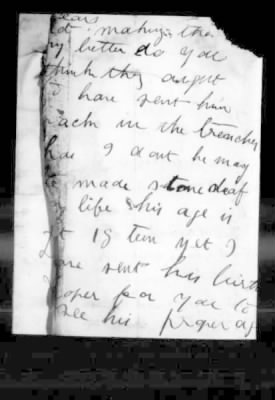 ears
making the
better do you
think they ought
to have sent him
back in the trenches
has I dont he may
made stone deaf
life his age is
18 teen yet I
have sent his birth
paper for you to
see his proper ag